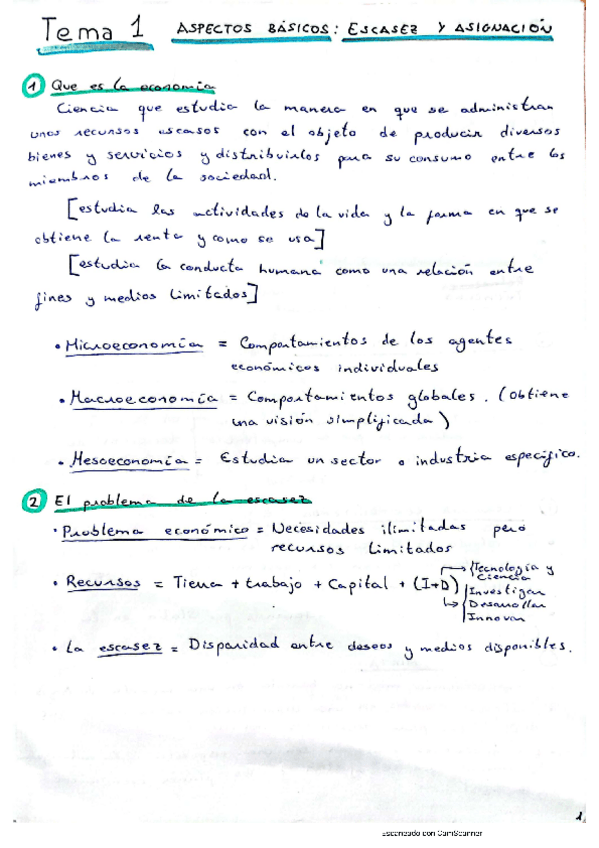 Tema 1 ASPECTOS BÁSICOS: ESCASEZ Y ASIGNACIÓN
1 Que es la economía
Ciencia que estudia la manera en que se administran
unos recursos escasos con el objeto de producir diversos
bienes y servicios y distribuirlos para su consumo entre los
miembros de la sociedad.
[estudia las actividades de la vida y la forma en que se
obtiene la renta y como se usa]
[estudia la conducta humana como una relación entre
fines y medios limitados]
• Microeconomía = Comportamientos de los agentes
económicos individuales
• Macroeconomía = Comportamientos globales. (obtiene
una visión simplificada)
• Mesoeconomía = Estudia un sector o industria específico.
2 El problema de la escasez
• Problema económico = Necesidades ilimitadas pero
recursos limitados
• Recursos = Tierra + trabajo + Capital + (I+D)
→ Tecnología y
Ciencia
↳ Investigar
Desarrollar
Innovar
• La escasez = Disparidad entre deseos y medios disponibles.
1
Escaneado con CamScanner